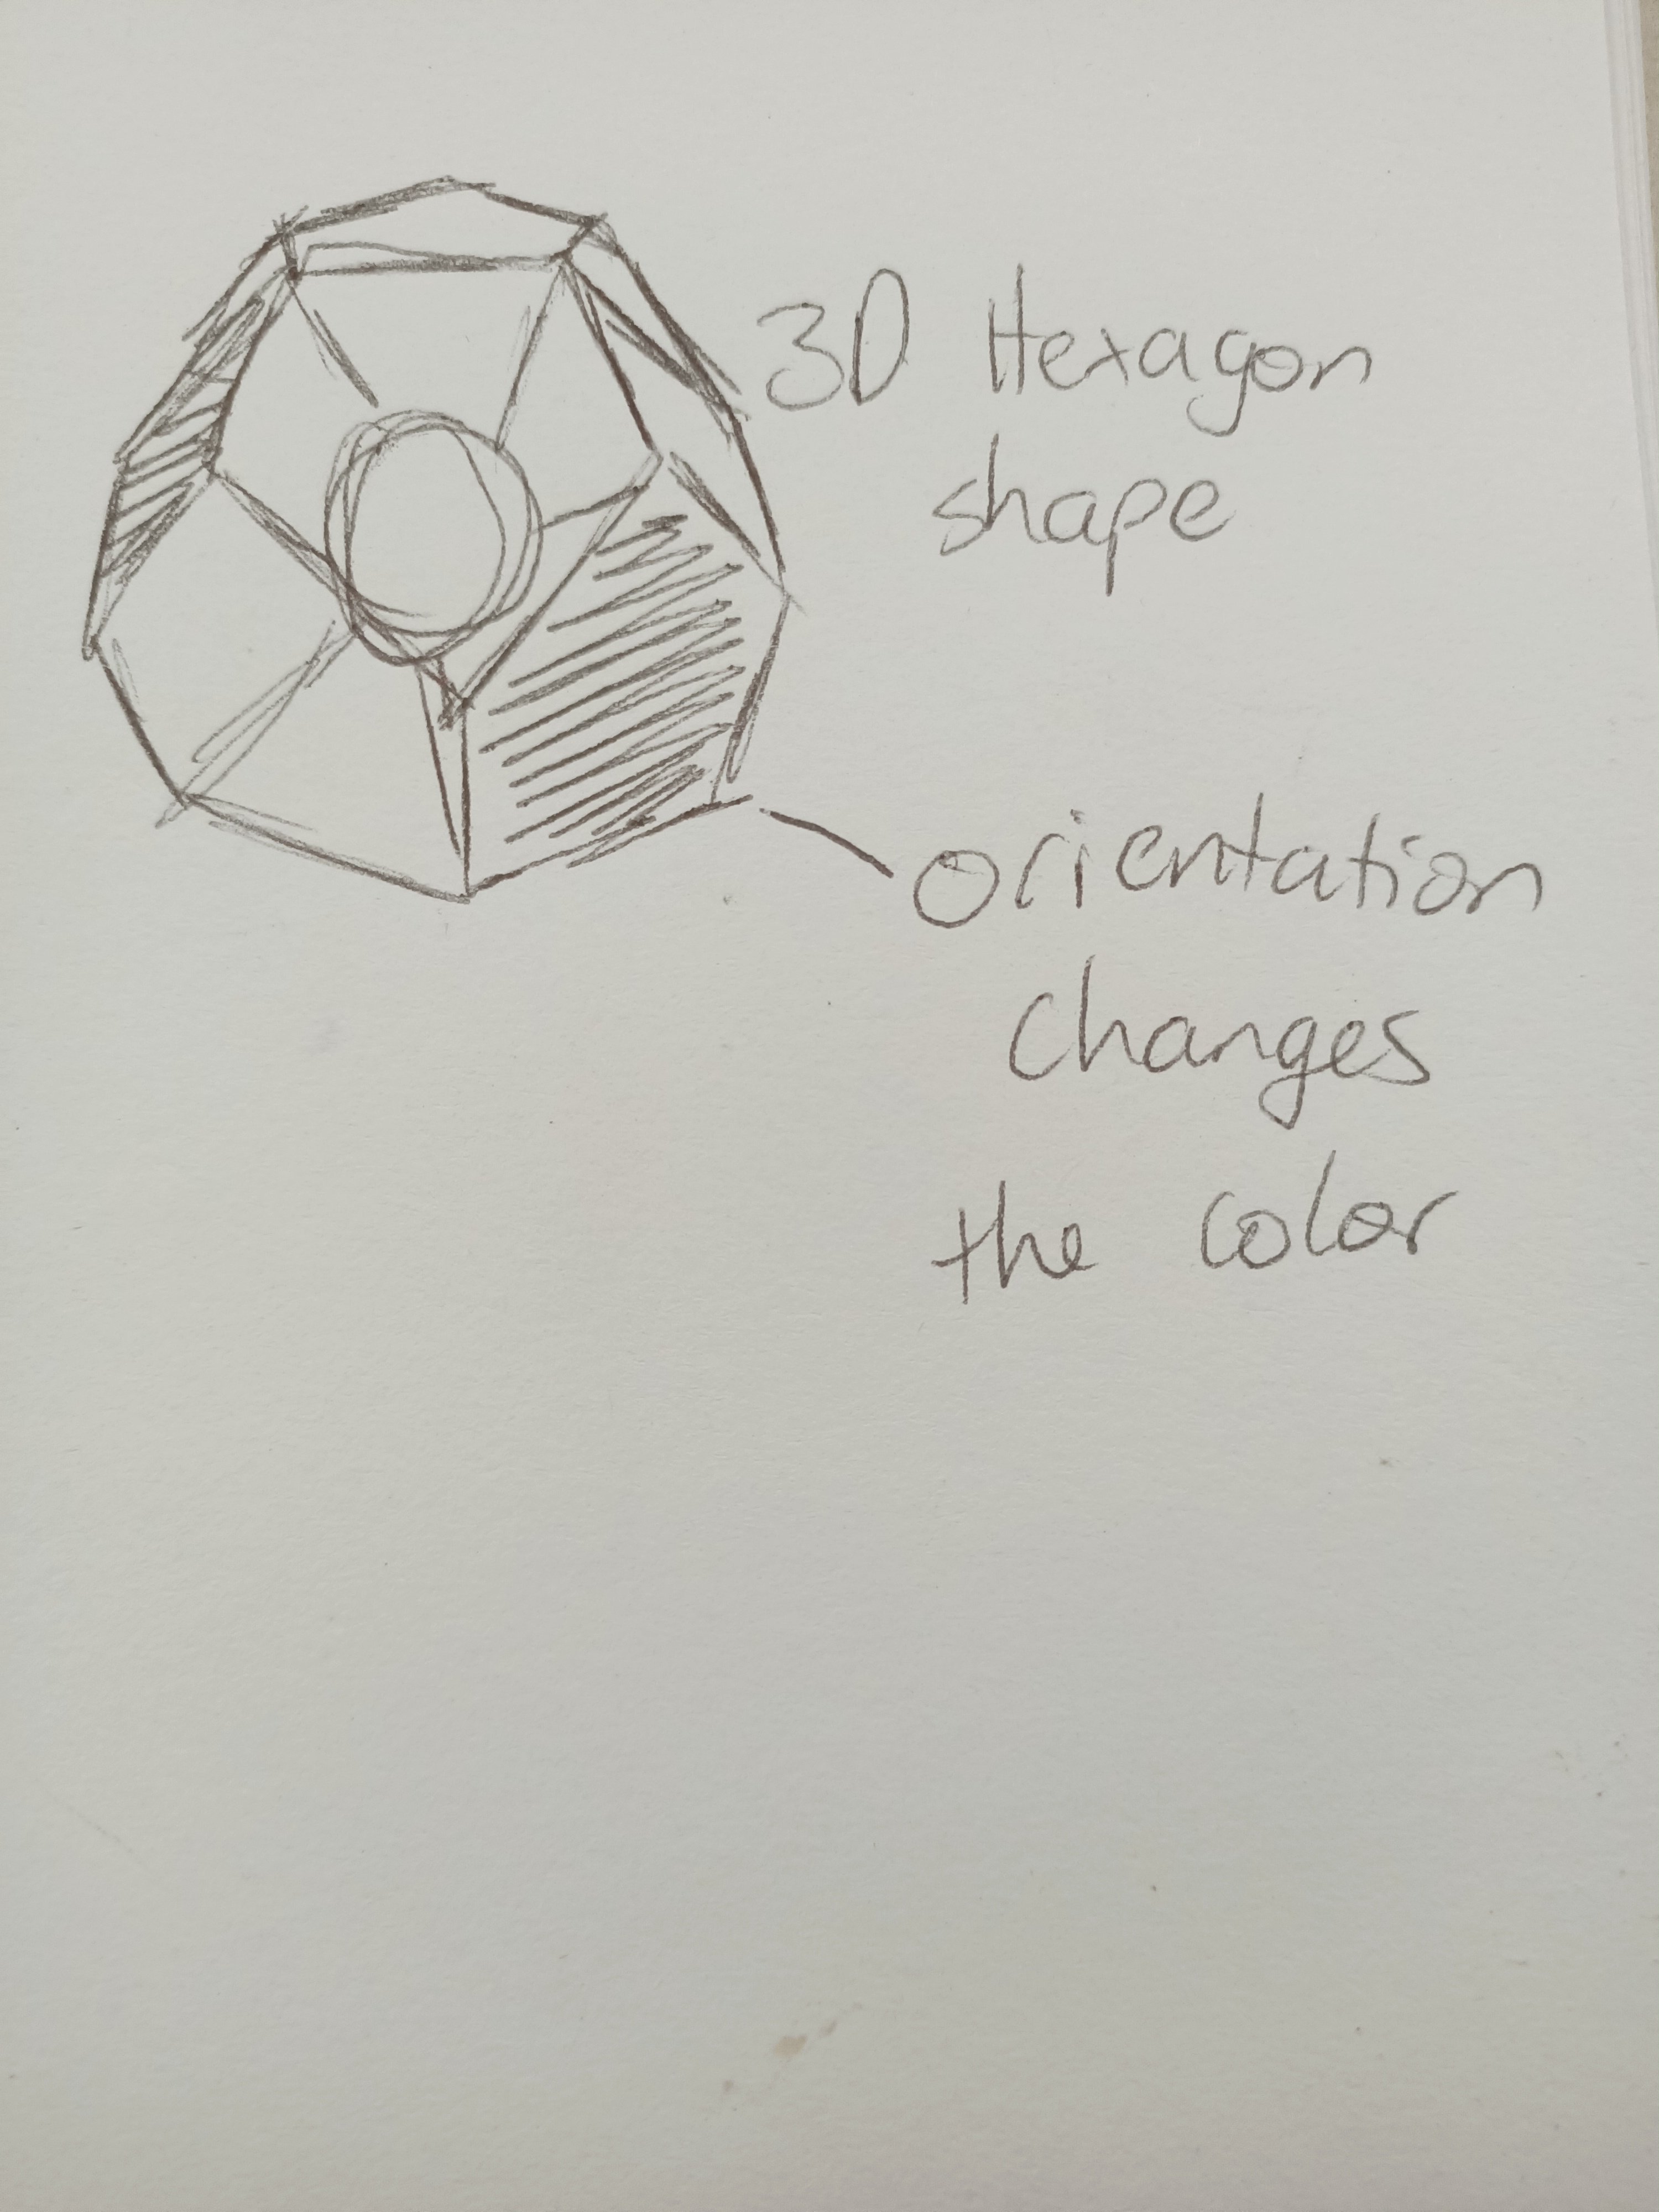 3D Hexagon
shape
Orientation
Changes
the color